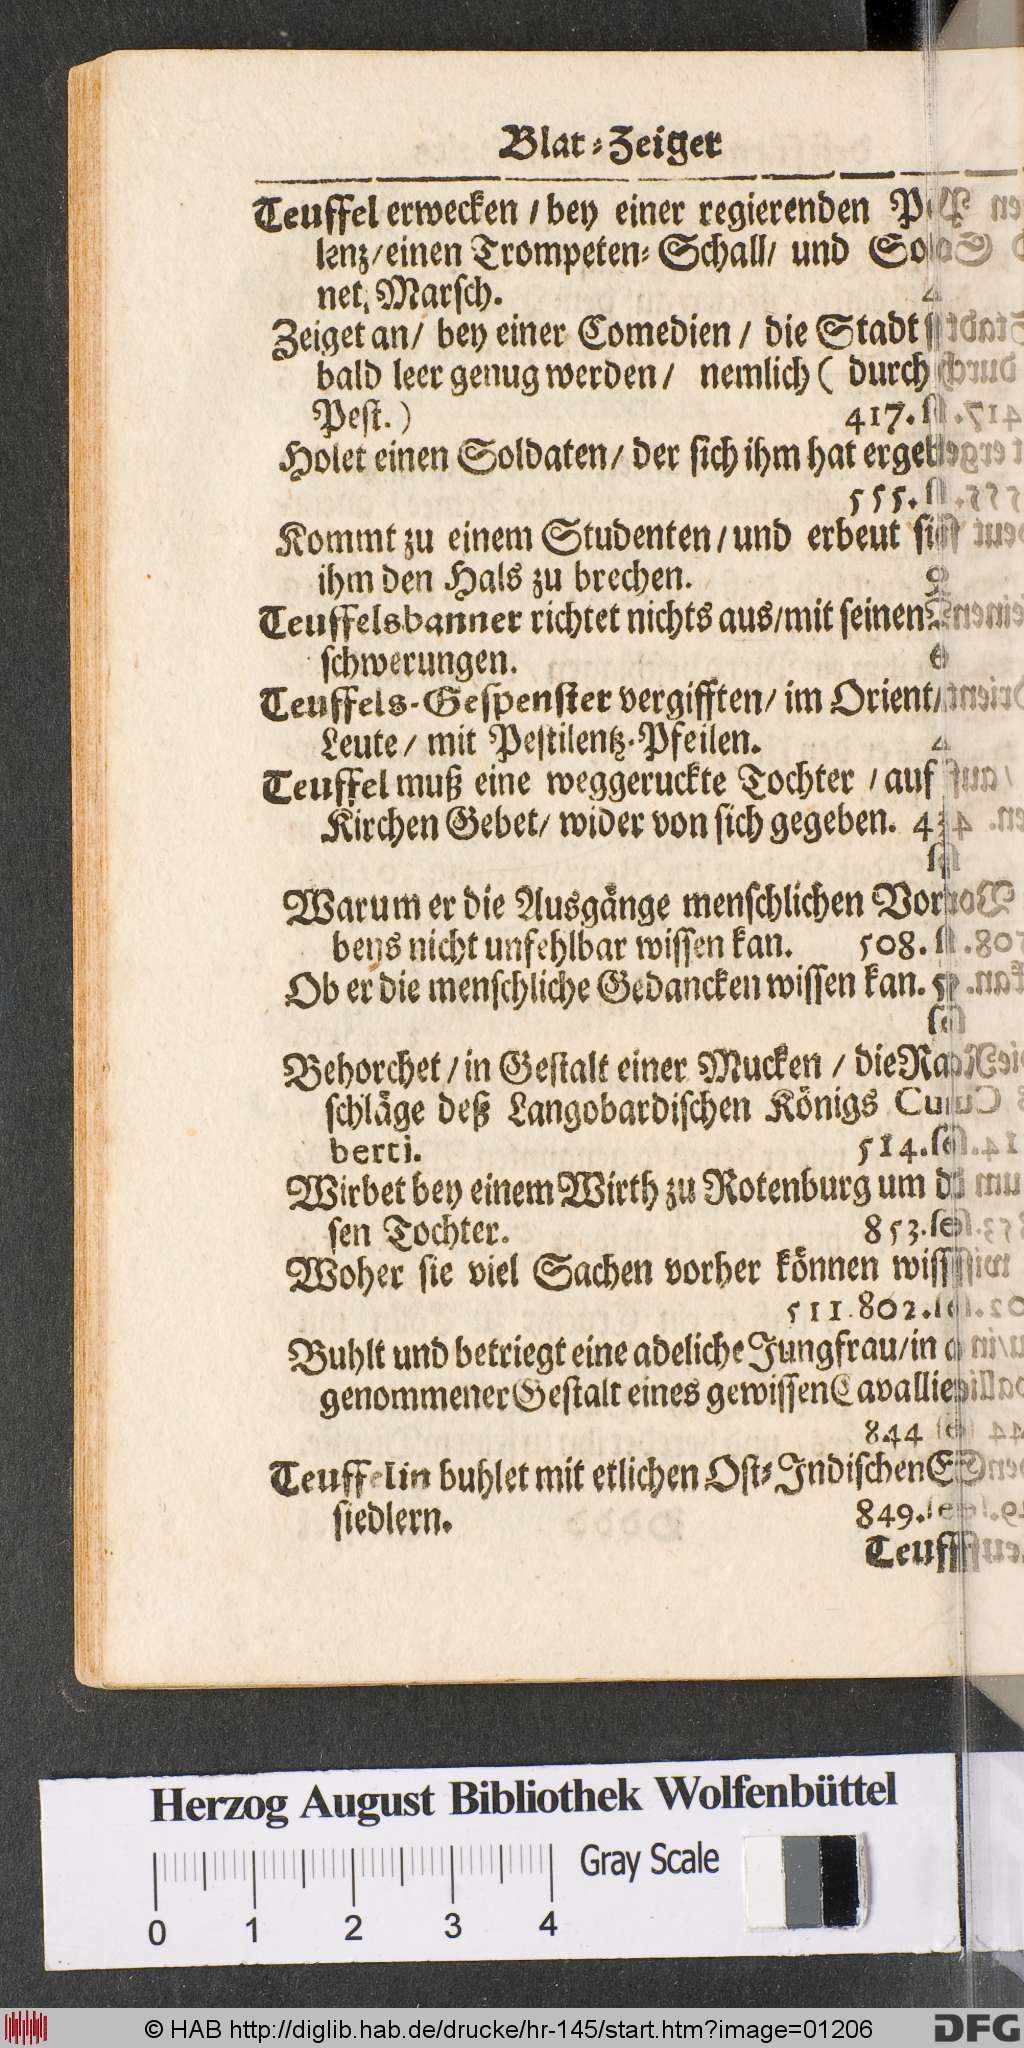 Blat-Zeiger
Teuffel erwecken / bey einer regierenden
lentz / einen Trompeten-Schall / und
net, Marsch.
Zeiget an / bey einer Comedien / die Stadt
bald leer genug werden / nemlich ( durch
Pest. ) 417.
Holet einen Soldaten / der sich ihm hat
555.
Kommt zu einem Studenten / und erbeut
ihm den Hals zu brechen.
Teuffelsbanner richtet nichts aus / mit seinen
schwerungen.
Teuffels-Gespenster vergifften / im Orient /
Leute / mit Pestilentz-Pfeilen.
Teuffel muß eine weggeruckte Tochter / auf
Kirchen Gebet / wider von sich gegeben.
Warum er die Ausgänge menschlichen
beys nicht unfehlbar wissen kan. 508.
Ob er die menschliche Gedancken wissen kan.
Behorchet / in Gestalt einer Mucken / die
schläge deß Langobardischen Königs
berti. 514.
Wirbet bey einem Wirth zu Rotenburg um
sen Tochter. 853.
Woher sie viel Sachen vorher können
511. 802.
Buhlt und betriegt eine adeliche Jungfrau / in
genommener Gestalt eines gewissen
844
Teuffelin buhlet mit etlichen Ost-Indischen
siedlern. 849.
Herzog August Bibliothek Wolfenbüttel
Gray Scale
0 1 2 3 4
© HAB http://diglib.hab.de/drucke/hr-145/start.htm?image=01206
DFG